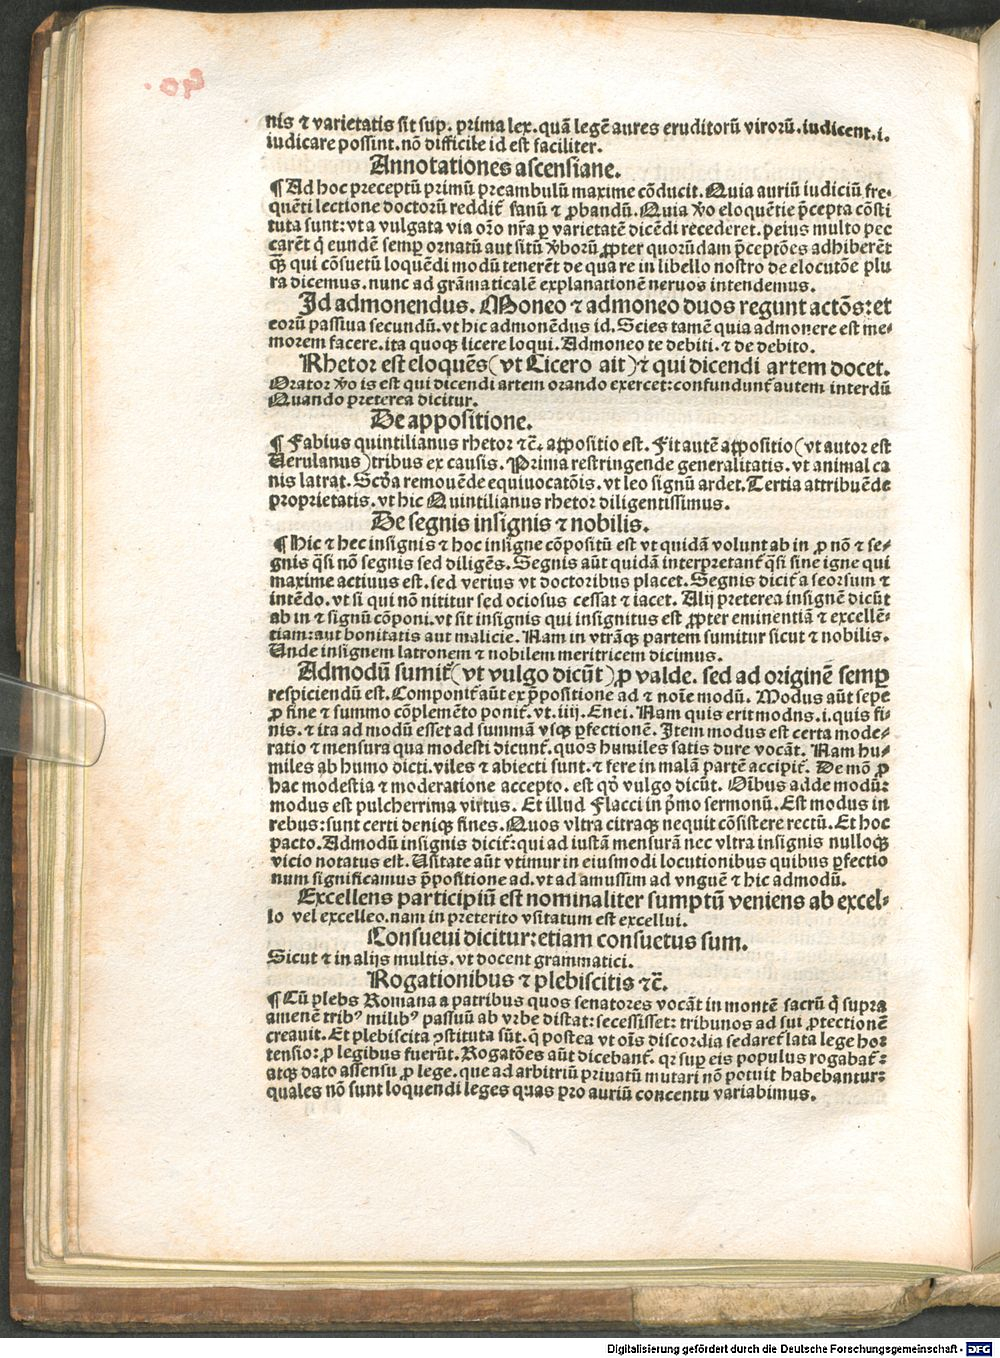 40.
nis ⁊ varietatis sit sup. prima lex. quã legẽ aures eruditorũ virorũ. iudicent. i.
iudicare possint. nõ difficile id est faciliter.
Annotationes ascensiane.
¶ Ad hoc preceptũ primũ preambulũ maxime cõducit. Quia auriũ iudiciũ fre-
quẽti lectione doctorũ reddit̃ sanũ ⁊ ꝓbandũ. Quia ꝟo eloquẽtie p̃cepta cõsti
tuta sunt: vt a vulgata via or̃o nr̃a ꝑ varietatẽ dicẽdi recederet. peius multo pec
carẽt q̃ eundẽ semꝑ ornatũ aut sitũ ꝟborũ ꝓpter quorũdam p̃ceptões adhiberẽt
qꝫ̃ qui cõsuetũ loquẽdi modũ tenerẽt de qua re in libello nostro de elocutõe plu
ra dicemus. nunc ad grãmaticalẽ explanationẽ neruos intendemus.
Id admonendus. Moneo ⁊ admoneo duos regunt actõs: et
eorũ passiua secundũ. vt hic admonẽdus id. Scies tamẽ quia admonere est me-
morem facere. ita quoqꝫ licere loqui. Admoneo te debiti. ⁊ de debito.
Rhetor est eloquẽs (vt Cicero ait) ⁊ qui dicendi artem docet.
Orator ꝟo is est qui dicendi artem orando exercet: confundunt̃ autem interdũ
Quando preterea dicitur.
De appositione.
¶ Fabius quintilianus rhetor ⁊c̃. appositio est. Fit autẽ appositio (vt autor est
Uerulanus) tribus ex causis. Prima restringende generalitatis. vt animal ca
nis latrat. Scd̃a remouẽde equiuocatõis. vt leo signũ ardet. Tertia attribuẽde
proprietatis. vt hic Quintilianus rhetor diligentissimus.
De segnis insignis ⁊ nobilis.
¶ Hic ⁊ hec insignis ⁊ hoc insigne cõpositũ est vt quidã volunt ab in ꝓ nõ ⁊ se-
gnis q̃si nõ segnis sed diligẽs. Segnis aũt quidã interpretant̃ q̃si sine igne qui
maxime actiuus est. sed verius vt doctoribus placet. Segnis dicit̃ a seorsum ⁊
intẽdo. vt si qui nõ nititur sed ociosus cessat ⁊ iacet. Alij preterea insignẽ dicũt
ab in ⁊ signũ cõponi. vt sit insignis qui insignitus est ꝓpter eminentiã ⁊ excellẽ-
tiam: aut bonitatis aut malicie. Nam in vtrãqꝫ partem sumitur sicut ⁊ nobilis.
Unde insignem latronem ⁊ nobilem meritricem dicimus.
Admodũ sumit̃ (vt vulgo dicũt) ꝓ valde. sed ad originẽ semꝑ
respiciendũ est. Componit̃ aũt ex p̃positione ad ⁊ noĩe modũ. Modus aũt sepe
ꝓ fine ⁊ summo cõplemẽto ponit̃. vt. iiij. Enei. Nam quis erit modns. i. quis fi-
nis. ⁊ ita ad modũ esset ad summã vsqꝫ ꝑfectionẽ. Item modus est certa mode-
ratio ⁊ mensura qua modesti dicunt̃. quos humiles satis dure vocãt. Nam hu-
miles ab humo dicti. viles ⁊ abiecti sunt. ⁊ fere in malã partẽ accipit̃. De mõ ꝓ
hac modestia ⁊ moderatione accepto. est qď vulgo dicũt. Oĩbus adde modũ:
modus est pulcherrima virtus. Et illud Flacci in p̃mo sermonũ. Est modus in
rebus: sunt certi deniqꝫ fines. Quos vltra citraqꝫ nequit cõsistere rectũ. Et hoc
pacto. Admodũ insignis dicit̃: qui ad iustã mensurã nec vltra insignis nulloqꝫ
vicio notatus est. Usitate aũt vtimur in eiusmodi locutionibus quibus ꝑfectio
num significamus p̃positione ad. vt ad amussim ad vnguẽ ⁊ hic admodũ.
Excellens participiũ est nominaliter sumptũ veniens ab excel-
lo vel excelleo. nam in preterito vsitatum est excellui.
Consueui dicitur: etiam consuetus sum.
Sicut ⁊ in alijs multis. vt docent grammatici.
Rogationibus ⁊ plebiscitis ⁊c̃.
¶ Cũ plebs Romana a patribus quos senatores vocãt in montẽ sacrũ q̃ supra
amenẽ tribꝰ milibꝰ passuũ ab vrbe distat: secessisset: tribunos ad sui ꝓtectionẽ
creauit. Et plebiscita ꝯstituta sũt. q̃ postea vt oĩs discordia sedaret̃ lata lege hor
tensio: ꝓ legibus fuerũt. Rogatões aũt dicebant̃. qr sup eis populus rogabat̃:
atqꝫ dato assensu ꝓ lege. que ad arbitriũ priuatũ mutari nõ potuit habebantur:
quales nõ sunt loquendi leges quas pro auriũ concentu variabimus.
Digitalisierung gefördert durch die Deutsche Forschungsgemeinschaft - DFG